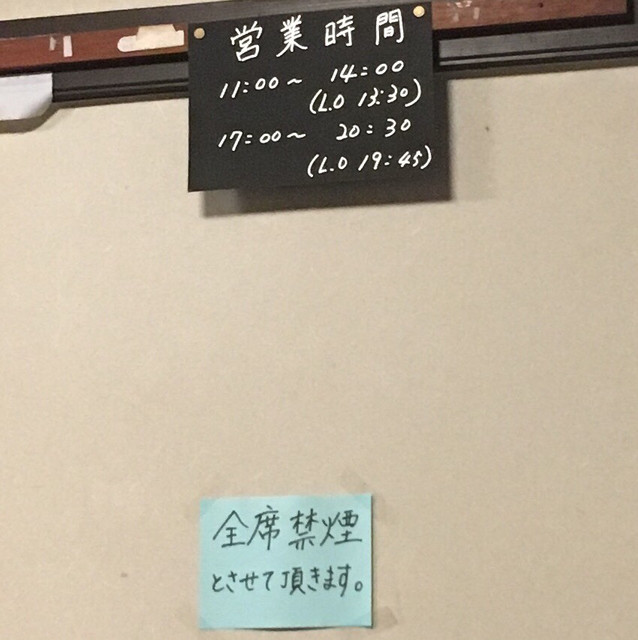 営業時間
11:00～ 14:00
(L.O 13:30)
17:00～ 20:30
(L.O 19:45)
全席禁煙
とさせて頂きます。